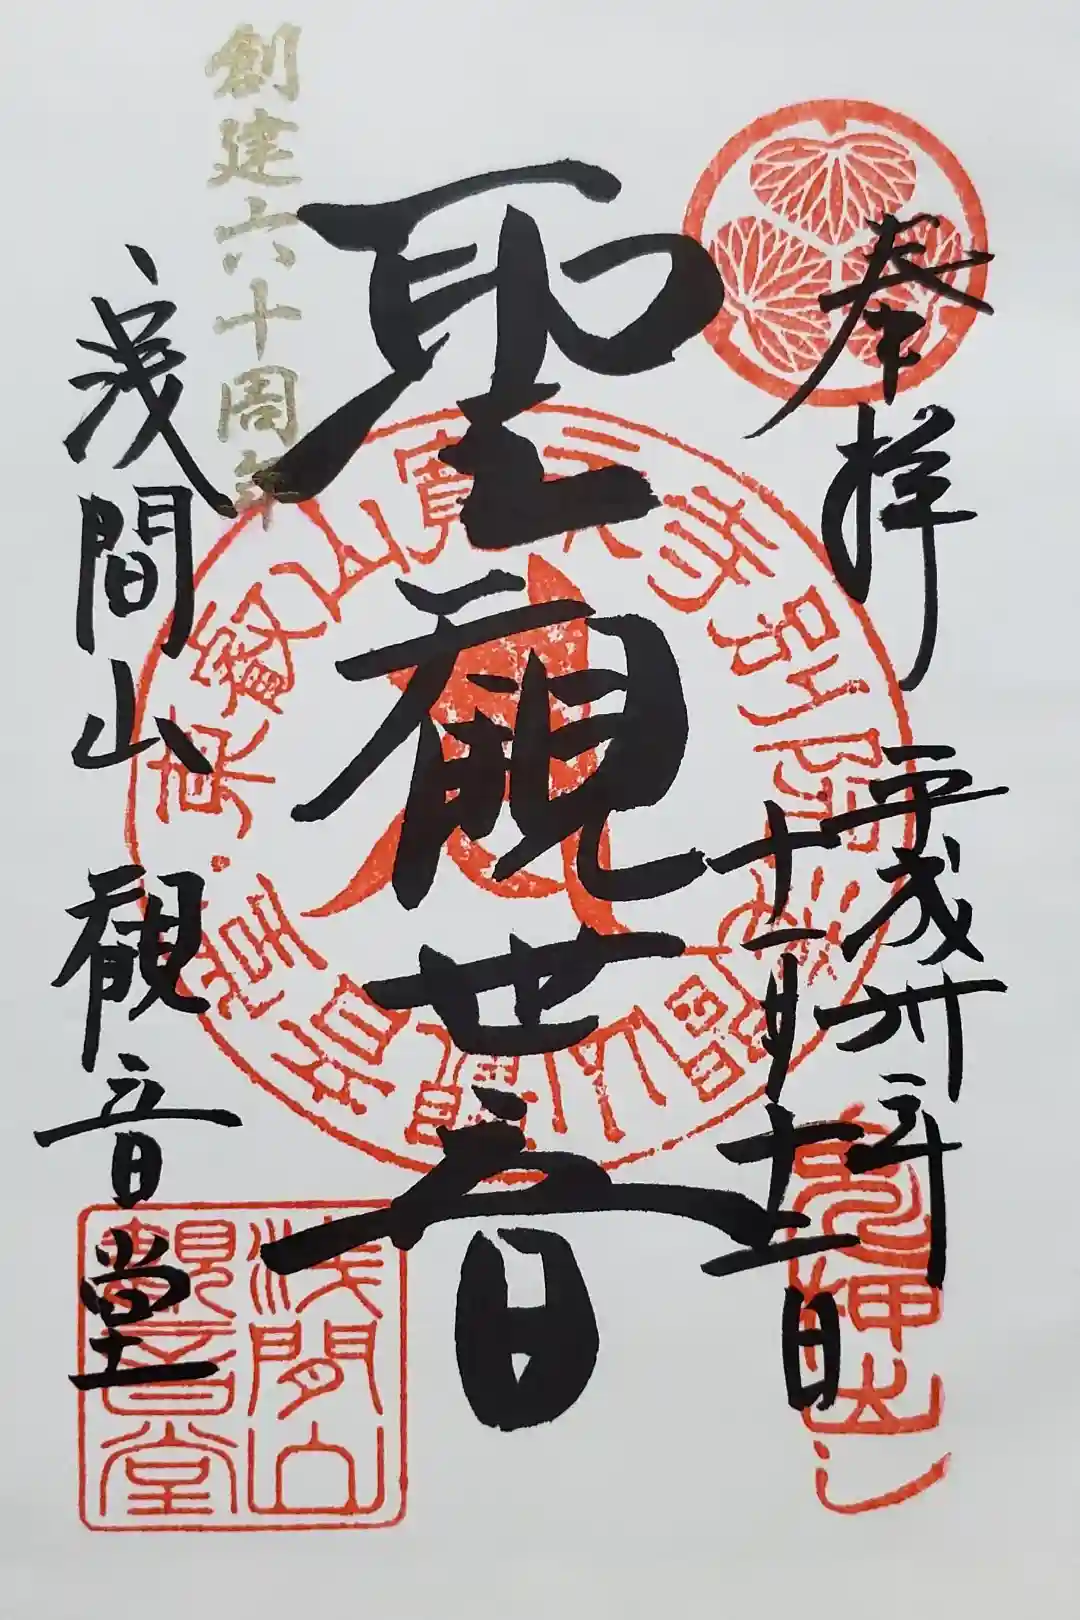 奉拝
平成卅年
十一月
日
鬼押出し
聖観世音
創建六十周年
浅間山観音堂
浅間山
観音堂